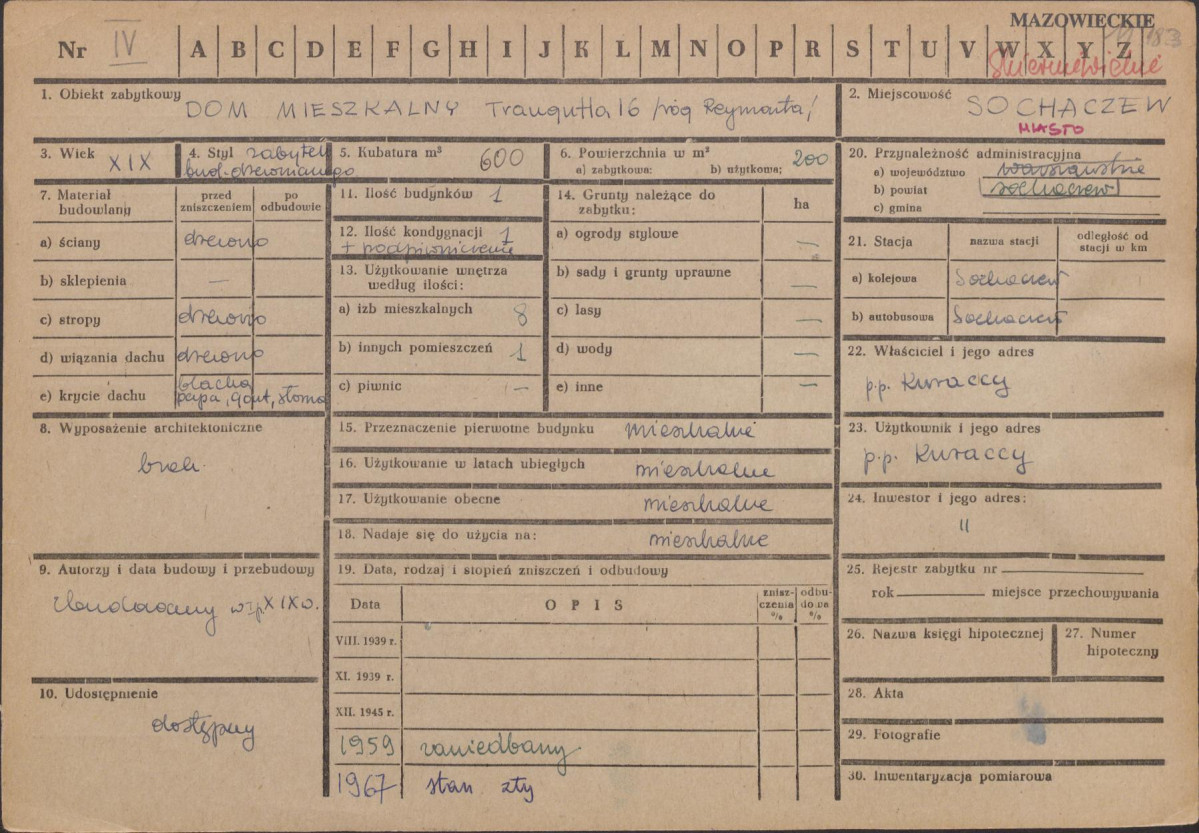 MAZOWIECKIE
Nr IV A B C D E F G H I J K L M N O P R S T U V W X Y Z
1. Obiekt zabytkowy DOM MIESZKALNY Traugutta 16 /róg Reymonta/
2. Miejscowość SOCHACZEW
MIASTO
3. Wiek XIX
4. Styl zabytek
bud. drewnianego
5. Kubatura m³ 600
6. Powierzchnia w m²
a) zabytkowa: b) użytkowa: 200
7. Materiał budowlany
przed zniszczeniem
po odbudowie
a) ściany drewno
b) sklepienia —
c) stropy drewno
d) wiązania dachu drewno
e) krycie dachu blacha
papa, gont, słoma
8. Wyposażenie architektoniczne
brak.
9. Autorzy i data budowy i przebudowy
XIX w.
10. Udostępnienie
dostępny
11. Ilość budynków 1
12. Ilość kondygnacji 1
+ podpiwniczenie
13. Użytkowanie wnętrza
według ilości:
a) izb mieszkalnych 8
b) innych pomieszczeń 1
c) piwnic —
14. Grunty należące do
zabytku:
ha
a) ogrody stylowe —
b) sady i grunty uprawne —
c) lasy —
d) wody —
e) inne —
15. Przeznaczenie pierwotne budynku mieszkalne
16. Użytkowanie w latach ubiegłych mieszkalne
17. Użytkowanie obecne mieszkalne
18. Nadaje się do użycia na: mieszkalne
19. Data, rodzaj i stopień zniszczeń i odbudowy
Data
OPIS
znisz-
czenia
%
odbu-
dowa
%
VIII. 1939 r.
XI. 1939 r.
XII. 1945 r.
1959 zaniedbany
1967 stan zły
20. Przynależność administracyjna
a) województwo warszawskie
b) powiat sochaczew
c) gmina
21. Stacja
nazwa stacji
odległość od
stacji w km
a) kolejowa Sochaczew
b) autobusowa Sochaczew
22. Właściciel i jego adres
p.p. Kuraccy
23. Użytkownik i jego adres
p.p. Kuraccy
24. Inwestor i jego adres:
"
25. Rejestr zabytku nr
rok miejsce przechowywania
26. Nazwa księgi hipotecznej
27. Numer
hipoteczny
28. Akta
29. Fotografie
30. Inwentaryzacja pomiarowa